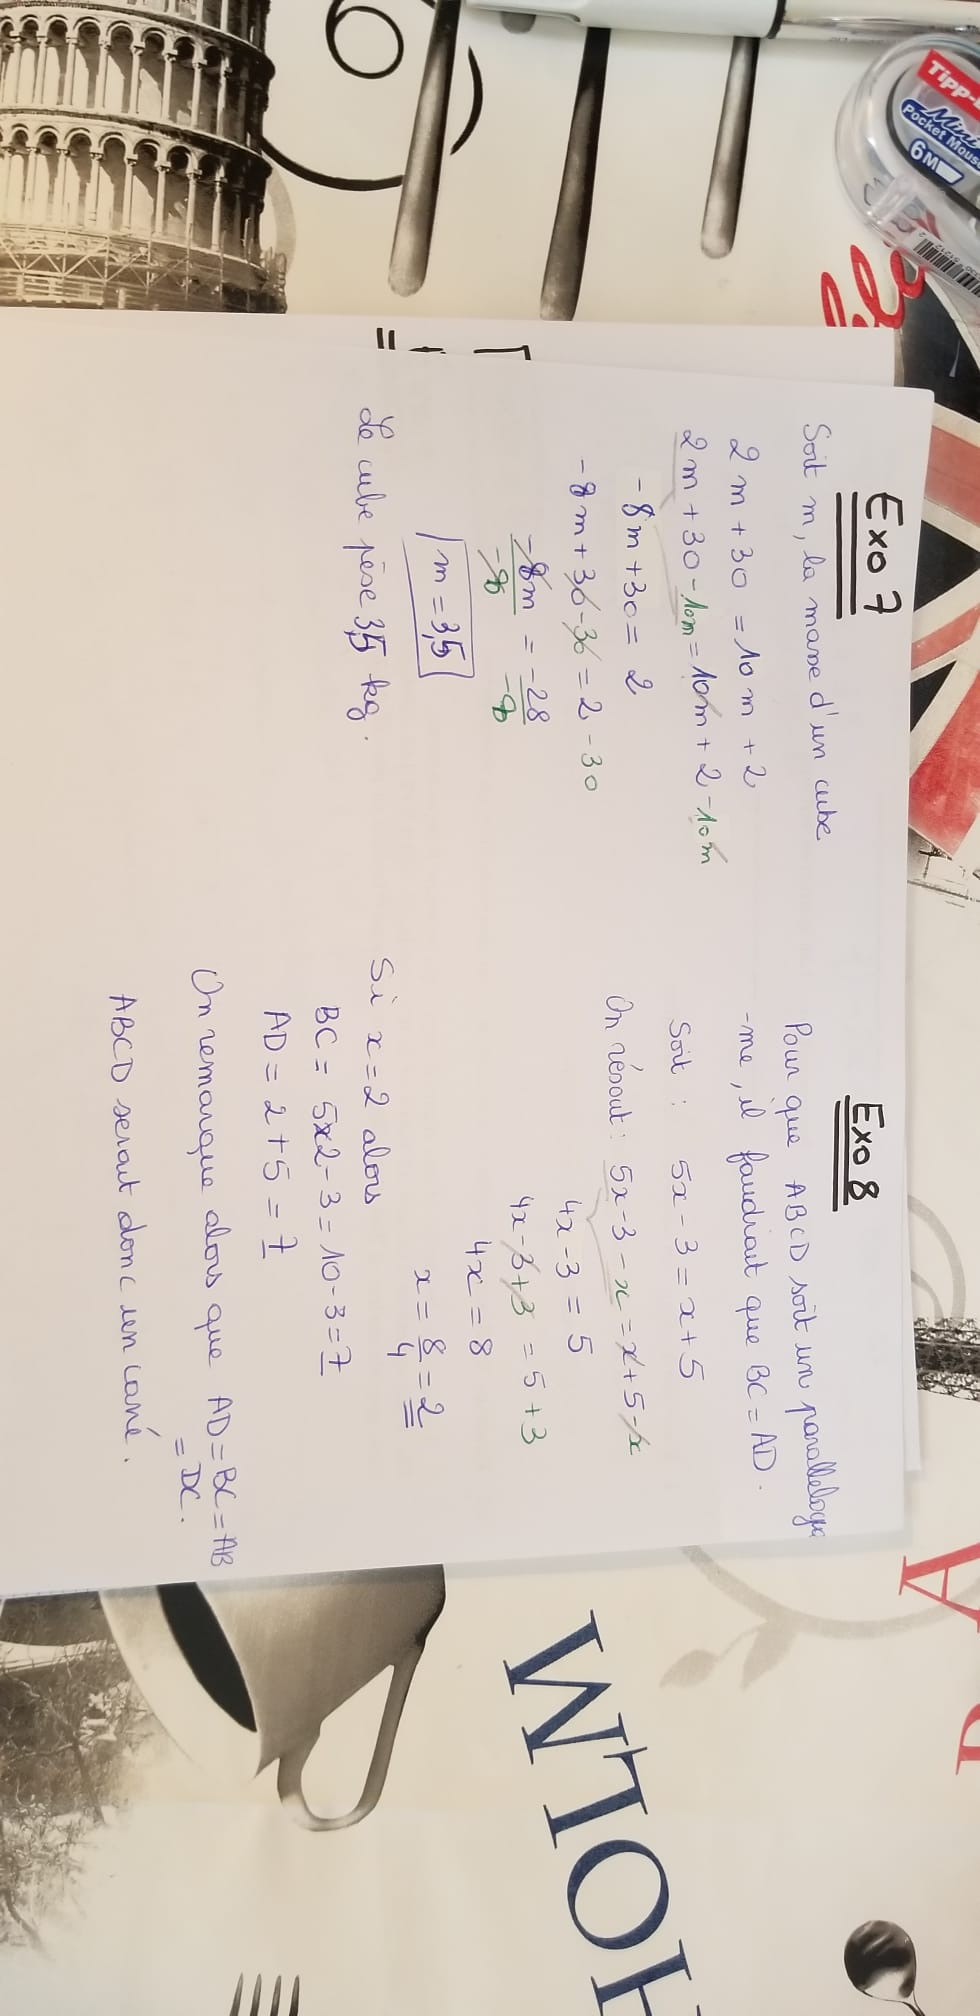 Tipp-
Mini
Pocket Mouse
6M
Exo 7
Soit m, la masse d'un cube
2m + 30 = 10m + 2
2m + 30 - 10m = 10m + 2 - 10m
-8m + 30 = 2
-8m + 30 - 30 = 2 - 30
-8m/-8 = -28/-8
m = 3,5
Le cube pèse 3,5 kg.
Exo 8
Pour que ABCD soit un parallélogra
-me, il faudrait que BC = AD.
Soit : 5x - 3 = x + 5
On résout : 5x - 3 - x = x + 5 - x
4x - 3 = 5
4x - 3 + 3 = 5 + 3
4x = 8
x = 8/4 = 2
Si x = 2 alors
BC = 5x2 - 3 = 10 - 3 = 7
AD = 2 + 5 = 7
On remarque alors que AD = BC = AB
= DC.
ABCD serait donc un carré.